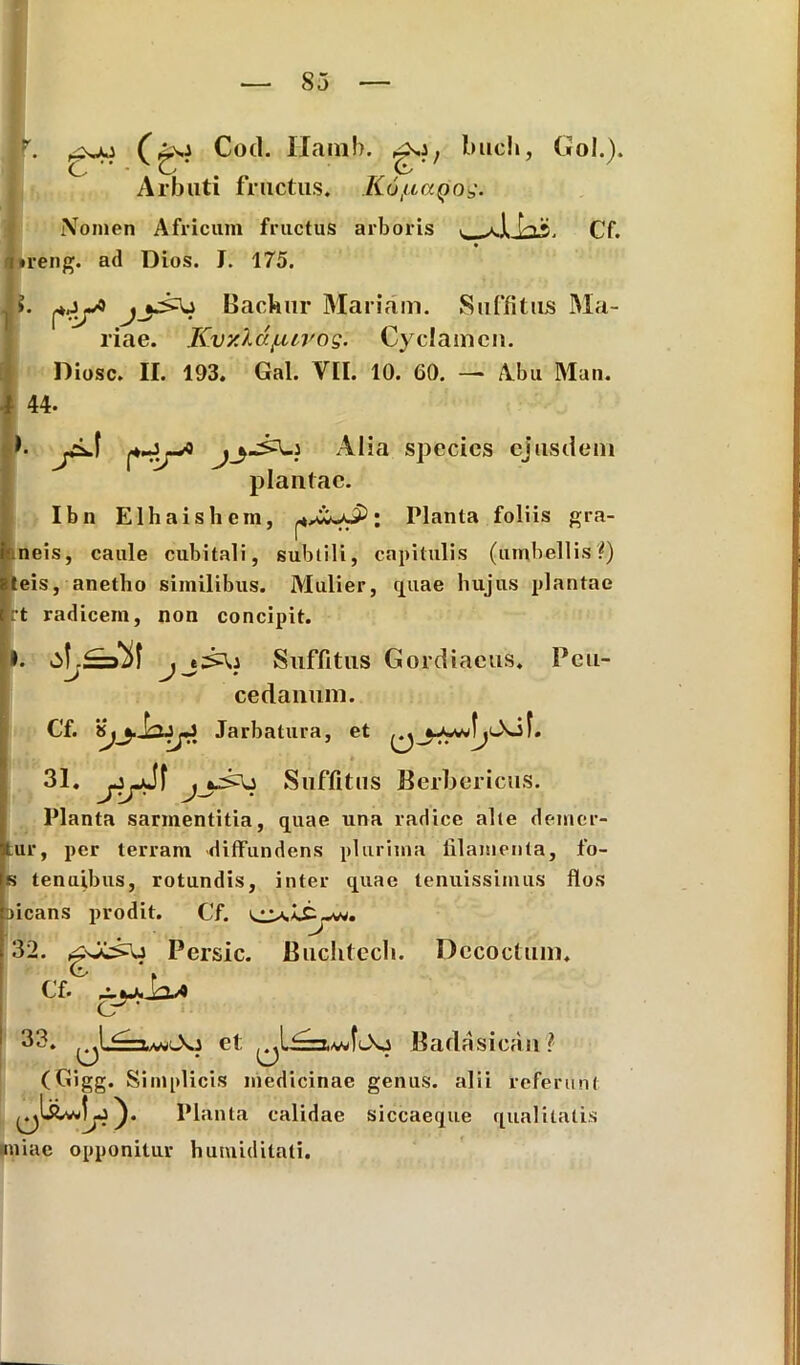 — 85 —
(Cod. Hamb. buch, Gol.).
Arbuti fructus. Κόμαρος.
Nomen Africum fructus arboris قطلب. Cf.
reng. ad Dios. I. 175.
بخور مريم Bachur Mariám. Suffitus Ma-
riae. Κυκλάμινος. Cyclamen.
Diosc. II. 193. Gal. VII. 10. 60. — Abu Man.
44.
بخور مريم آخر Alia species ejusdem
plantae.
Ibn Elhaishem, هيثم: Planta foliis gra-
neis, caule cubitali, subtili, capitulis (umbellis?)
teis, anetho similibus. Mulier, quae hujus plantae
rt radicem, non concipit.
بخور الاكراد Suffitus Gordiacus. Peu-
cedanum.
Cf. يربطورة Jarbatura, et
31. بخور البربر Suffitus Berbericus.
Planta sarmentitia, quae una radice alte demer-
tur, per terram diffundens plurima filamenta, fo-
s tenuibus, rotundis, inter quae tenuissimus flos
bicans prodit. Cf.
32. بختج Persic. Buchtech. Decoctum.
Cf. مطبوخ
33. بدسكان et بداسكان Badásicán?
(Gigg. Simplicis medicinae genus. alii referunt
). Planta calidae siccaeque qualitatis
miae opponitur humiditati.